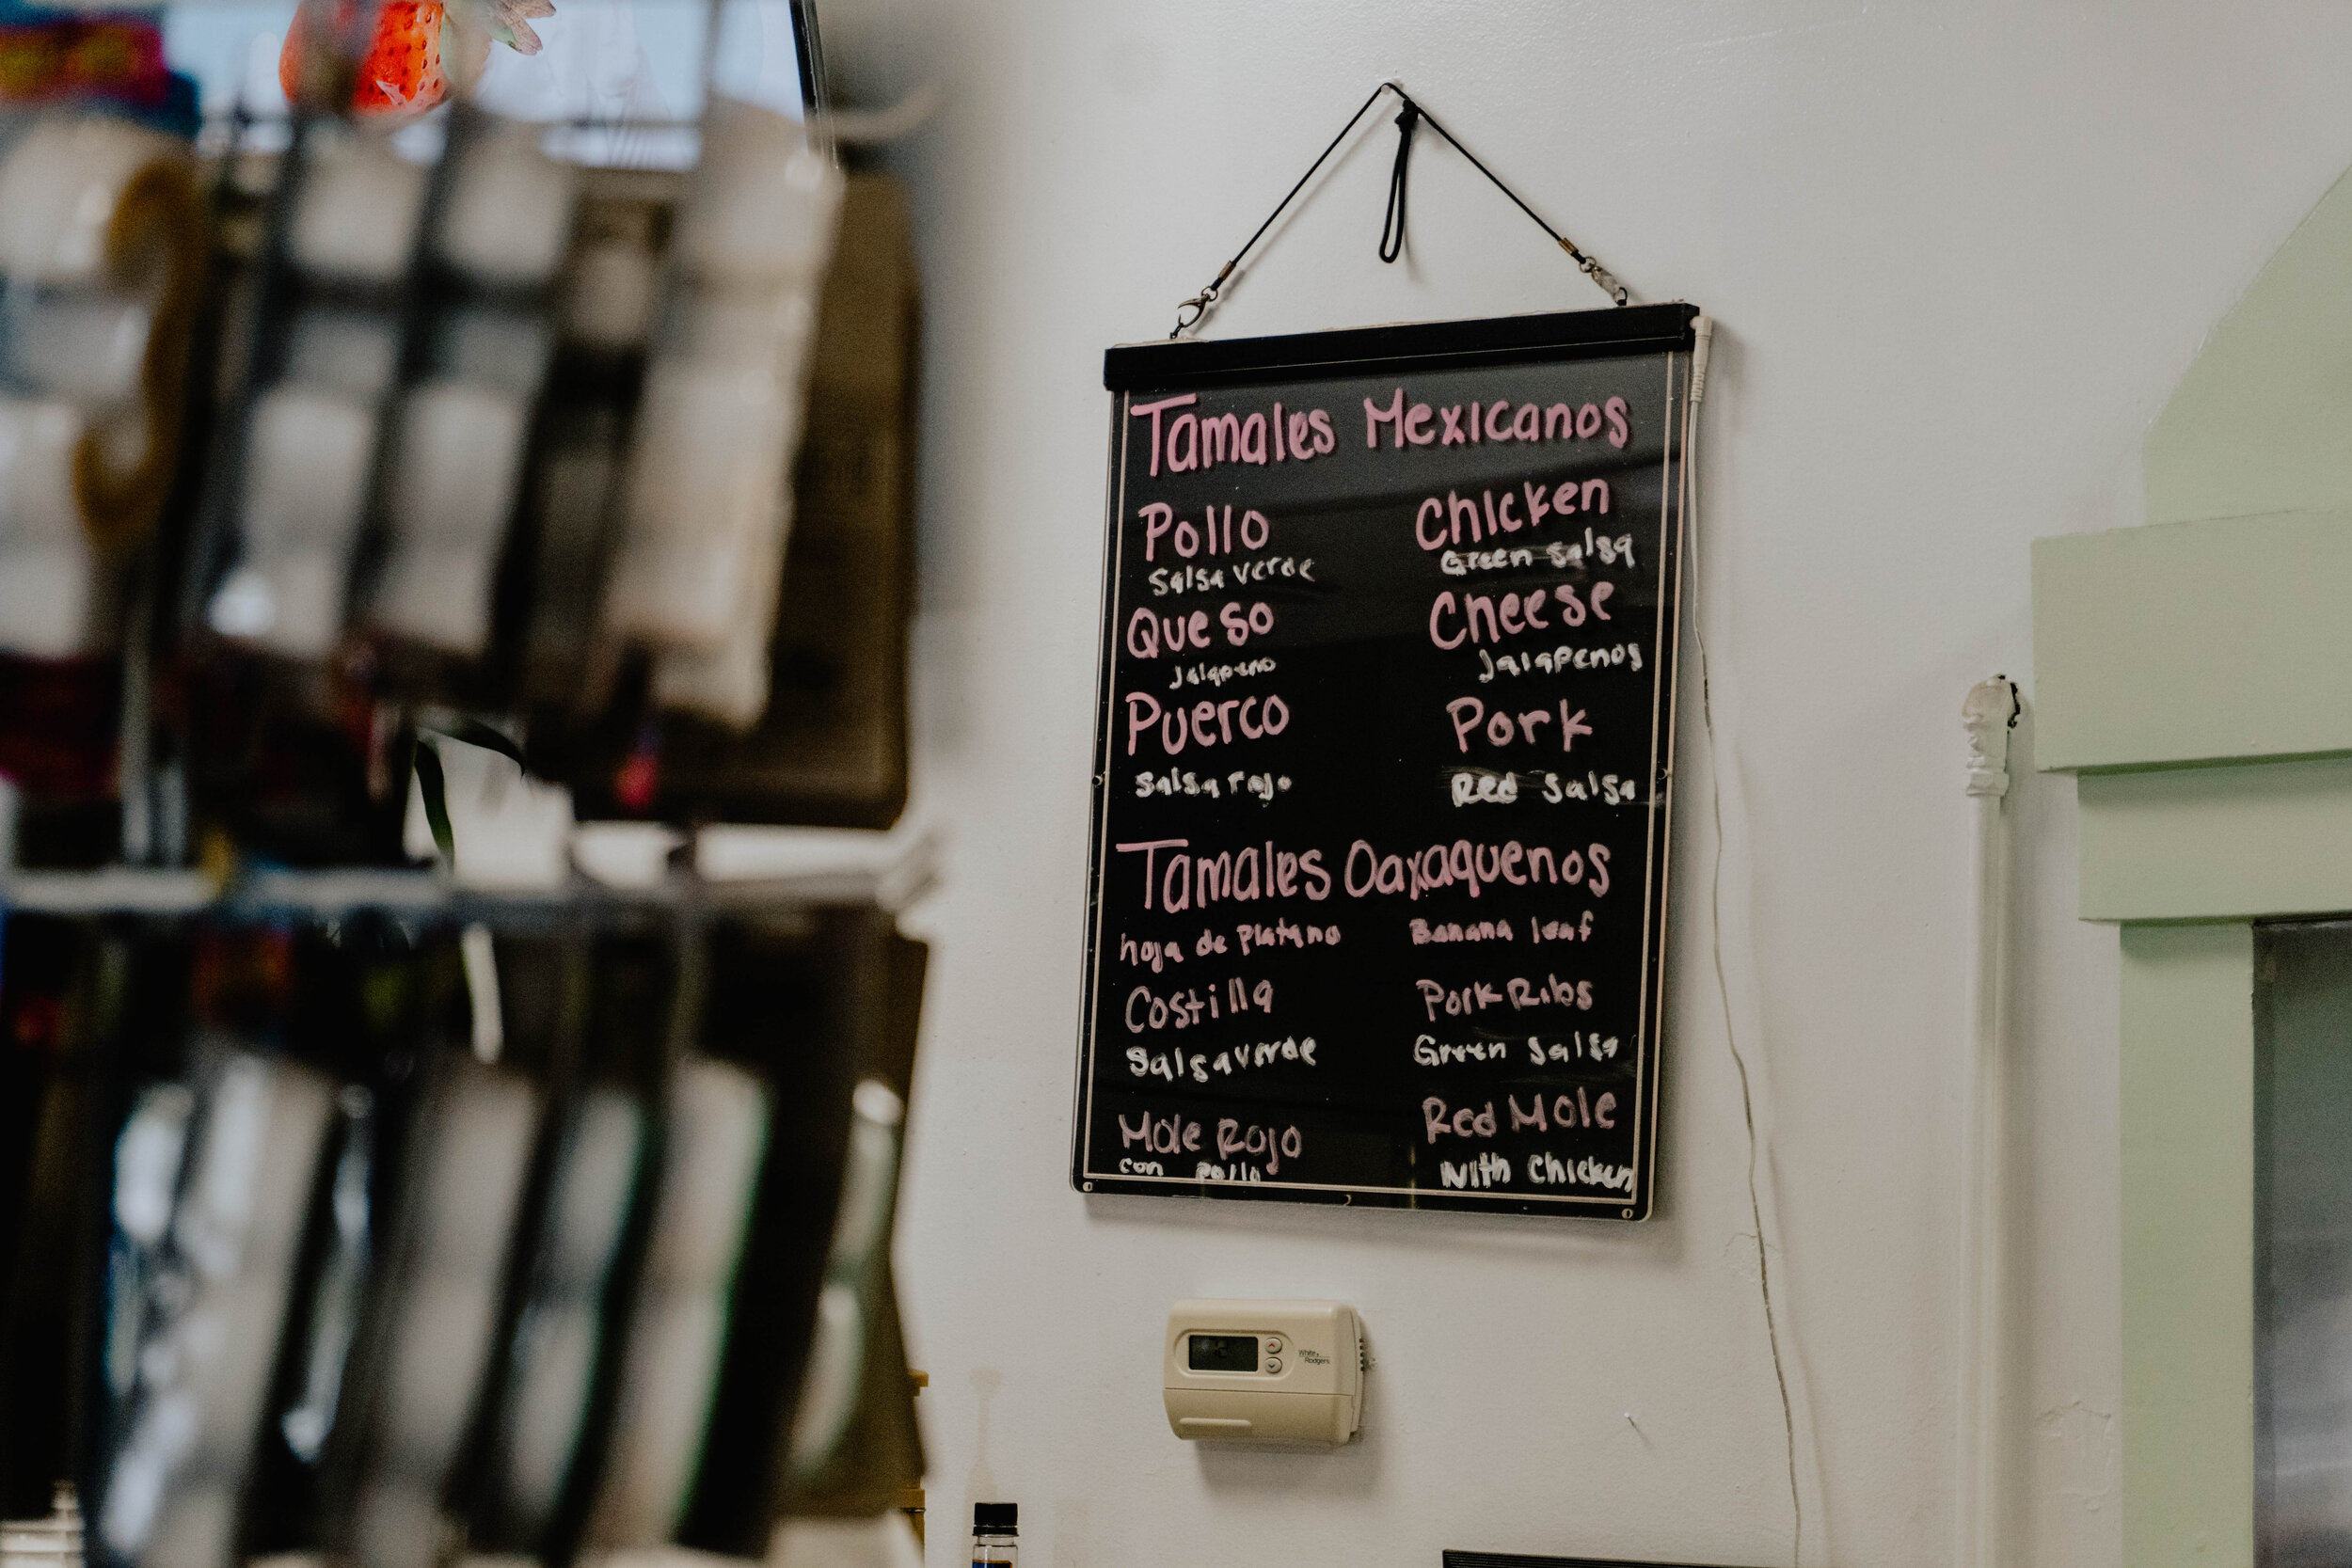 Tamales Mexicanos
Pollo Chicken
Salsa verde Green Salsa
Queso Cheese
Jalapeno Jalapenos
Puerco Pork
Salsa rojo Red Salsa
Tamales Oaxaquenos
hoja de Platano Banana leaf
Costilla Pork Ribs
Salsa verde Green Salsa
Mole Rojo Red Mole
con pollo With Chicken
White
Rodgers